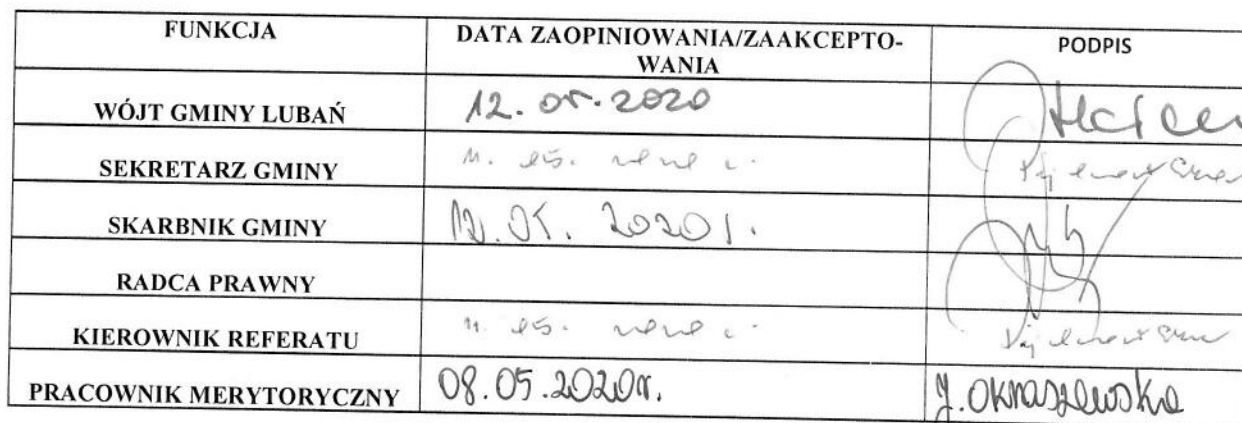 FUNKCJA
DATA ZAOPINIOWANIA/ZAAKCEPTO-
WANIA
PODPIS
WÓJT GMINY LUBAŃ
12.05.2020
SEKRETARZ GMINY
SKARBNIK GMINY
12.05.2020 r.
RADCA PRAWNY
KIEROWNIK REFERATU
PRACOWNIK MERYTORYCZNY
08.05.2020r.
J. Okraszewska